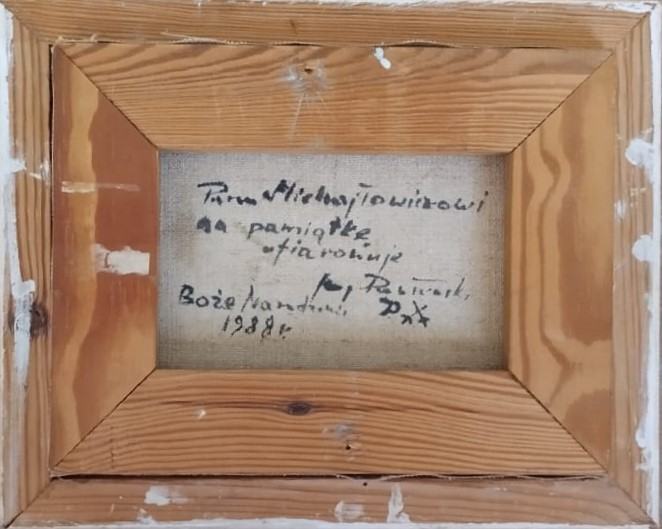 Panu Michajłowiczowi
na pamiątkę
ofiaruje
Boże Narodzenie
1988 r.